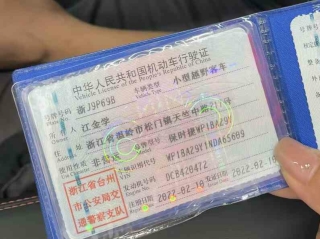 中华人民共和国机动车行驶证
Vehicle License of the People's Republic of China
号牌号码 浙J9P69B 车辆类型 小型越野客车
所有人 江金学
住址 浙江省温岭市松门镇天竺中路217号
使用性质 非营运 品牌型号 保时捷WP1BA29Y
浙江省台州
市公安局交
通警察支队
车辆识别代号 WP1BA29Y1NDA65609
发动机号码 DCB420472
注册日期 2022-02-16 发证日期 2022-02-16